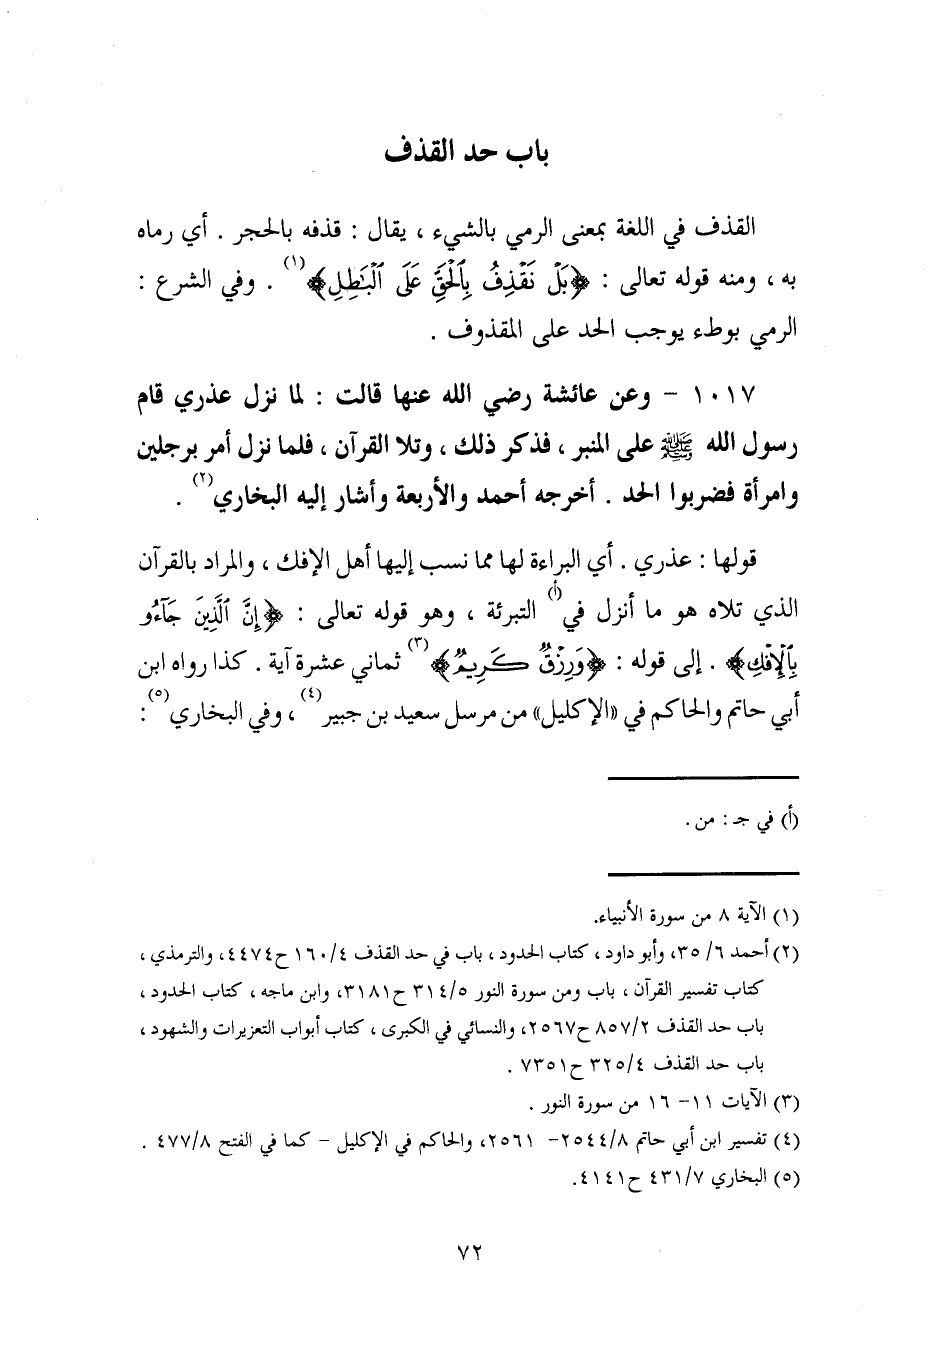 باب حد القذف
القذف في اللغة بمعنى الرمي بالشيء ، يقال : قذفه بالحجر . أي رماه
به ، ومنه قوله تعالى : ﴿بَلْ نَقْذِفُ بِٱلْحَقِّ عَلَى ٱلْبَٰطِلِ﴾(١) . وفي الشرع :
الرمي بوطء يوجب الحد على المقذوف .
١٠١٧ - وعن عائشة رضي الله عنها قالت : لما نزل عذري قام
رسول الله ﷺ على المنبر ، فذكر ذلك ، وتلا القرآن ، فلما نزل أمر برجلين
وامرأة فضربوا الحد . أخرجه أحمد والأربعة وأشار إليه البخاري(٢) .
قولها : عذري . أي البراءة لها مما نسب إليها أهل الإفك ، والمراد بالقرآن
الذي تلاه هو ما أنزل في(أ) التبرئة ، وهو قوله تعالى : ﴿إِنَّ ٱلَّذِينَ جَآءُو
بِٱلْإِفْكِ﴾ . إلى قوله : ﴿وَرِزْقٌ كَرِيمٌ﴾(٣) ثماني عشرة آية . كذا رواه ابن
أبي حاتم والحاكم في «الإكليل» من مرسل سعيد بن جبير(٤) ، وفي البخاري(٥) :
(أ) في جـ : من .
(١) الآية ٨ من سورة الأنبياء.
(٢) أحمد ٣٥/٦، وأبو داود ، كتاب الحدود ، باب في حد القذف ١٦٠/٤ ح٤٤٧٤، والترمذي ،
كتاب تفسير القرآن ، باب ومن سورة النور ٣١٤/٥ ح٣١٨١، وابن ماجه ، كتاب الحدود ،
باب حد القذف ٨٥٧/٢ ح٢٥٦٧، والنسائي في الكبرى ، كتاب أبواب التعزيرات والشهود ،
باب حد القذف ٣٢٥/٤ ح٧٣٥١ .
(٣) الآيات ١١- ١٦ من سورة النور .
(٤) تفسير ابن أبي حاتم ٢٥٤٤/٨- ٢٥٦١، والحاكم في الإكليل - كما في الفتح ٤٧٧/٨ .
(٥) البخاري ٤٣١/٧ ح٤١٤١.
٧٢